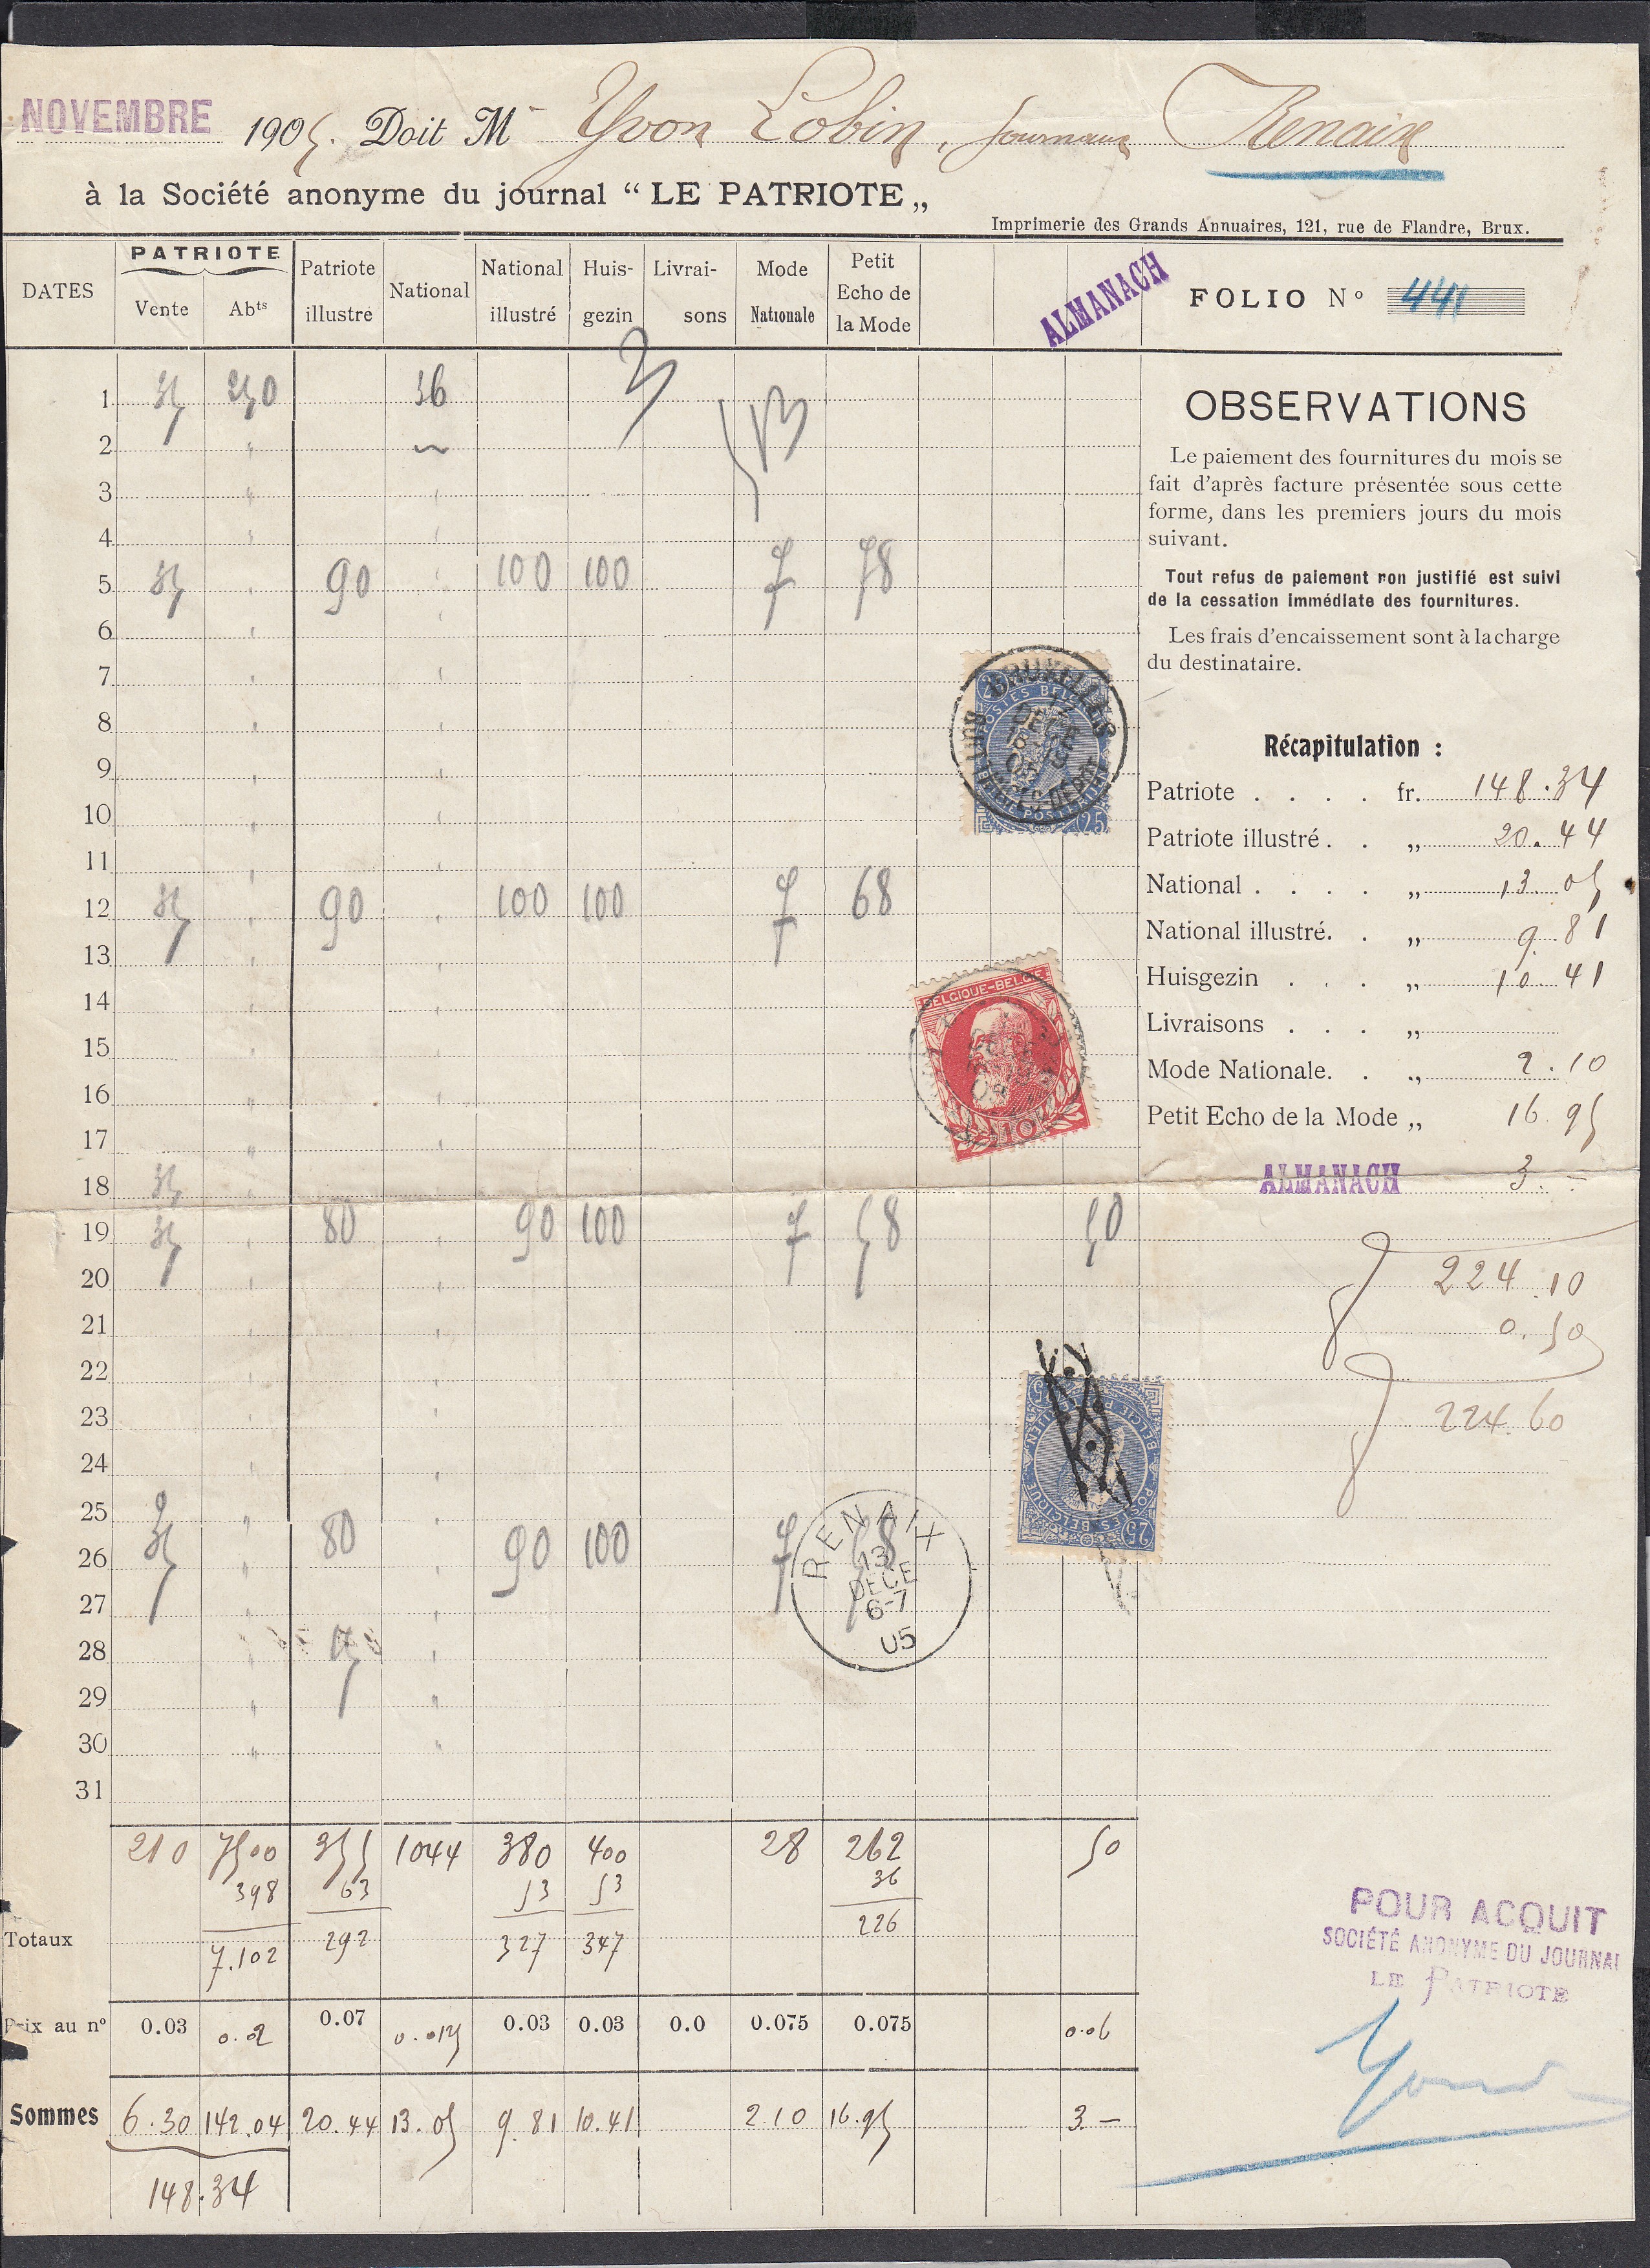 NOVEMBRE 1905. Doit M Yvon Lobin, Journaux Renaix
à la Société anonyme du journal “ LE PATRIOTE „
Imprimerie des Grands Annuaires, 121, rue de Flandre, Brux.
DATES PATRIOTE Vente Abts Patriote illustre National National illustré Huis-gezin Livrai-sons Mode Nationale Petit Echo de la Mode ALMANACH
FOLIO No 441
1 35 250 36
2
3
4
5 35 90 100 100 7 78
6
7
8
9
10
11
12 35 90 100 100 7 68
13
14
15
16
17
18 35
19 35 80 90 100 7 58 50
20
21
22
23
24
25
26 35 80 90 100 7 58
27
28 15
29
30
31
BRUXELLES
DECE
POSTES BELGIQUE
BELGIE POSTERIJEN
25
BELGIQUE-BELGIE
10
BELGIE POSTERIJEN
POSTES BELGIQUE
25
RENAIX
13
DECE
6-7
05
210 7500 355 1044 380 400 28 262 50
398 63 53 53 36
Totaux 7.102 292 327 347 226
Prix au no 0.03 0.02 0.07 0.0125 0.03 0.03 0.0 0.075 0.075 0.06
Sommes 6.30 142.04 20.44 13.05 9.81 10.41 2.10 16.95 3.—
148.34
OBSERVATIONS
Le paiement des fournitures du mois se
fait d’après facture présentée sous cette
forme, dans les premiers jours du mois
suivant.
Tout refus de paiement non justifié est suivi
de la cessation immédiate des fournitures.
Les frais d’encaissement sont à la charge
du destinataire.
Récapitulation :
Patriote . . . . fr. 148.34
Patriote illustré . . „ 20.44
National . . . . „ 13.05
National illustré. . „ 9.81
Huisgezin . . . „ 10.41
Livraisons . . . „
Mode Nationale. . „ 2.10
Petit Echo de la Mode „ 16.95
ALMANACH 3.—
224.10
0.50
224.60
POUR ACQUIT
SOCIÉTÉ ANONYME DU JOURNAL
LE PATRIOTE